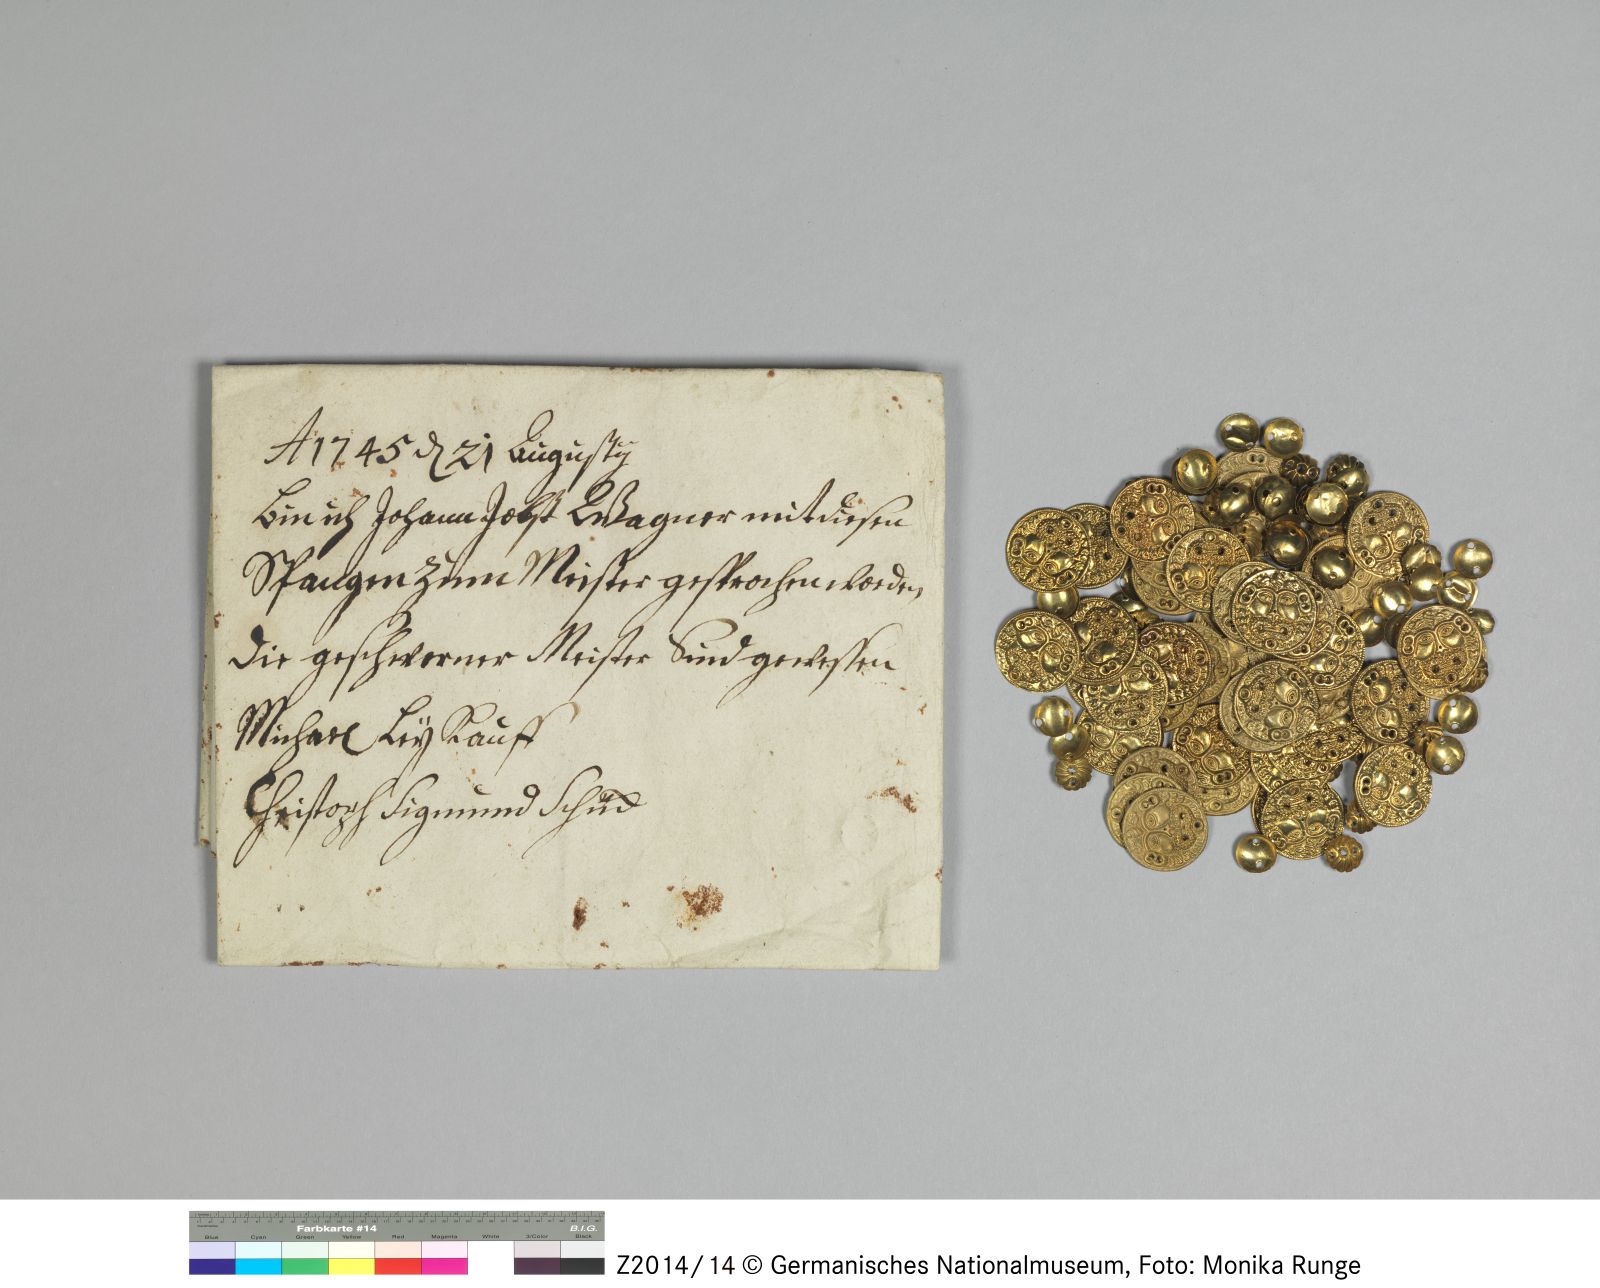 A 1745 d 21 Augusty
bin ich Johann Jobst Wagner mit diesen
Spangen zum Meister gesprochen worden
die geschworner Meister Sind gewessen
Michael Leykauff
Christoph Sigmund Schüd
Farbkarte #14
B.I.G.
Blue Cyan Green Yellow Red Magenta White 3/Color Black
Z2014/14 © Germanisches Nationalmuseum, Foto: Monika Runge